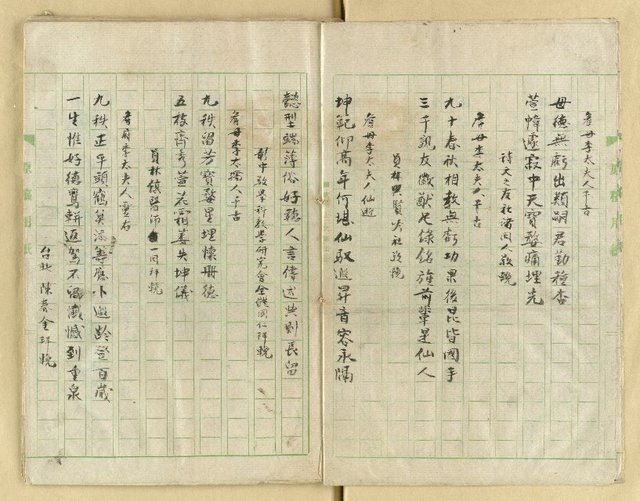 詹母李太夫人千古
母德無虧出類嗣君勤種杏
萱幃遽寂中天寶婺痛埋光
詩文之友社諸同人敬輓
詹母李太夫人千古
九十春秋相教無虧功果後昆皆國手
三千親友徵獻足錄銘旌前輩是仙人
員林興賢吟社敬輓
詹母李太夫人仙逝
坤範仰高年何堪仙馭遐昇音容永隔
懿型端薄俗好聽人言傳述典則長留
彰中數學科教學研究會全體同仁拜輓
詹母李太孺人千古
九秩留芳寶婺星埋懷母德
五枝齊秀萱花霜萎失坤儀
員林鎮醫師一同拜輓
詹府李太夫人靈右
九秩正平頭鶴算添籌應卜遐齡登百歲
一生惟好德鸞軿返駕不留遺憾到重泉
台北 陳春金拜輓